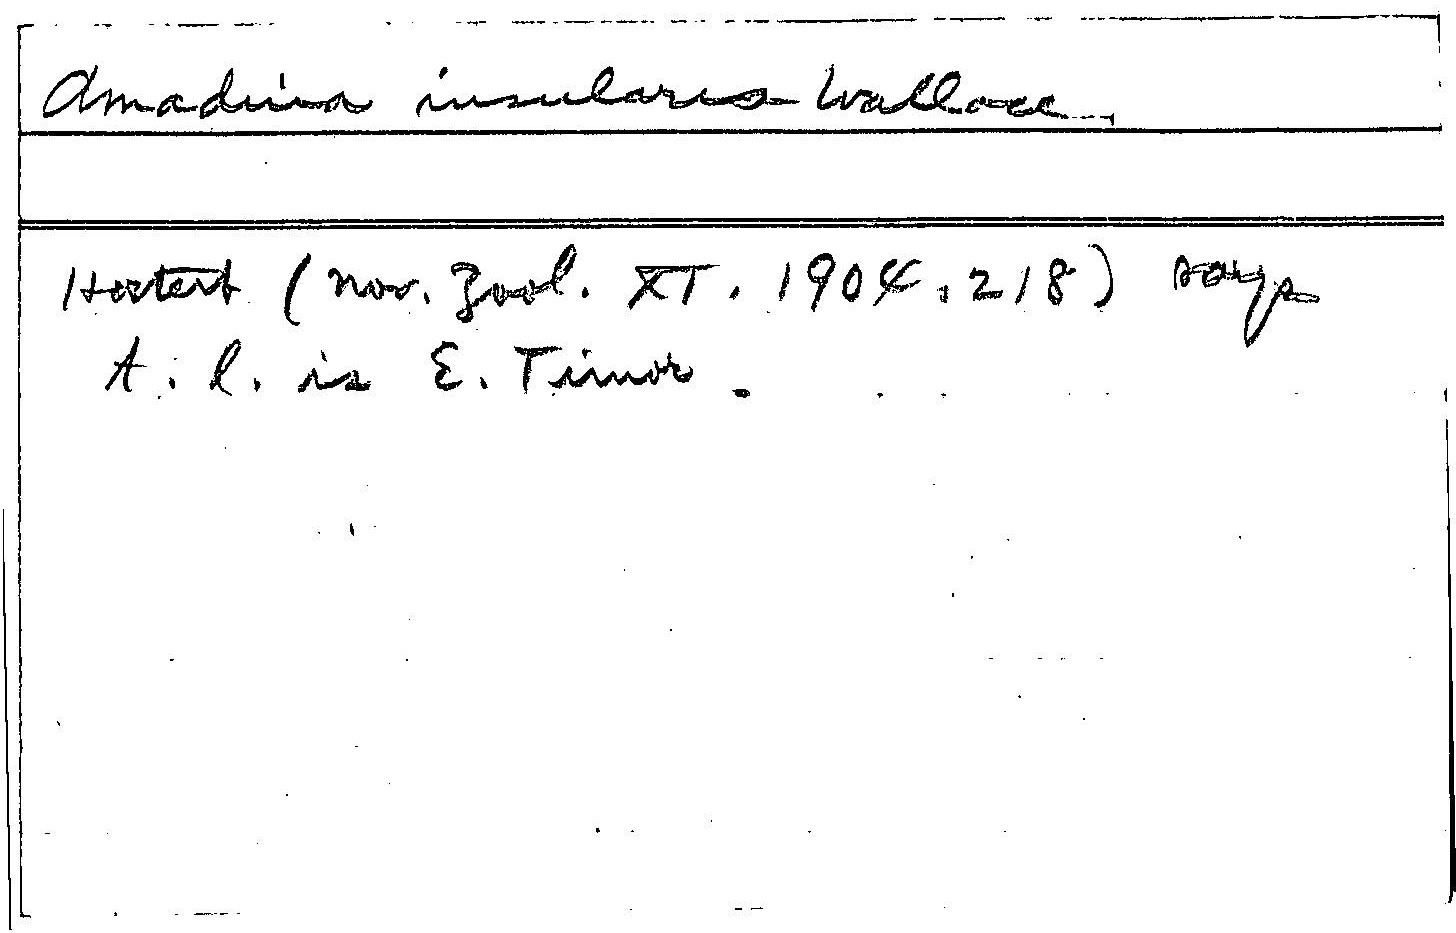 Amadina insularis Wallace
Hartert (Nov. Zool. XI. 1904, 218) says
t. l. is E. Timor.